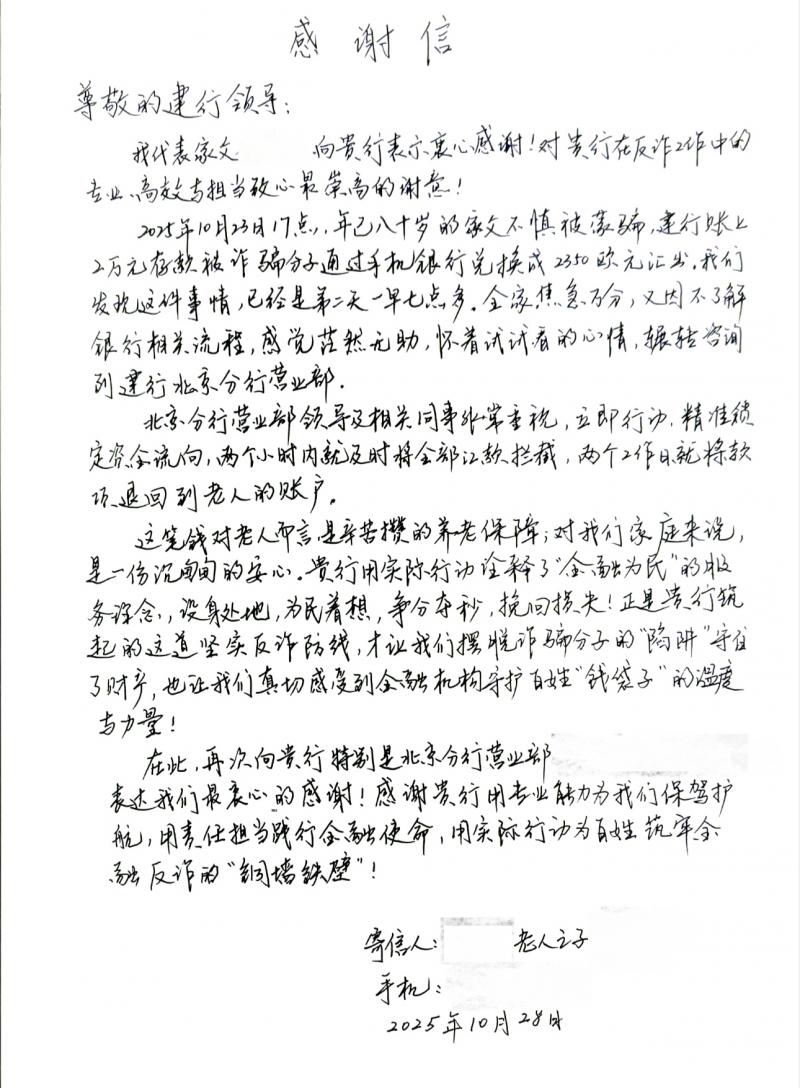 感谢信
尊敬的建行领导：
我代表家父 向贵行表示衷心感谢！对贵行在反诈工作中的
专业、高效与担当致以最崇高的谢意！
2025年10月23日17点，年已八十岁的家父不慎被蒙骗，建行账上
2万元存款被诈骗分子通过手机银行兑换成2350欧元汇出。我们
发现这件事情，已经是第二天一早七点多。全家焦急万分，又因不了解
银行相关流程，感觉茫然无助，怀着试试看的心情，辗转咨询
到建行北京分行营业部。
北京分行营业部领导及相关同事非常重视，立即行动，精准锁
定资金流向，两个小时内就及时将全部汇款拦截，两个工作日就将款
项退回到老人的账户。
这笔钱对老人而言是辛苦攒的养老保障；对我们家庭来说，
是一份沉甸甸的安心。贵行用实际行动诠释了“金融为民”的服
务理念，设身处地，为民着想，争分夺秒，挽回损失！正是贵行筑
起的这道坚实反诈防线，才让我们摆脱诈骗分子的“陷阱”守住
了财产，也让我们真切感受到金融机构守护百姓“钱袋子”的温度
与力量！
在此，再次向贵行特别是北京分行营业部
表达我们最衷心的感谢！感谢贵行用专业能力为我们保驾护
航，用责任担当践行金融使命，用实际行动为百姓筑牢金
融反诈的“铜墙铁壁”！
寄信人： 老人之子
手机：
2025年10月28日